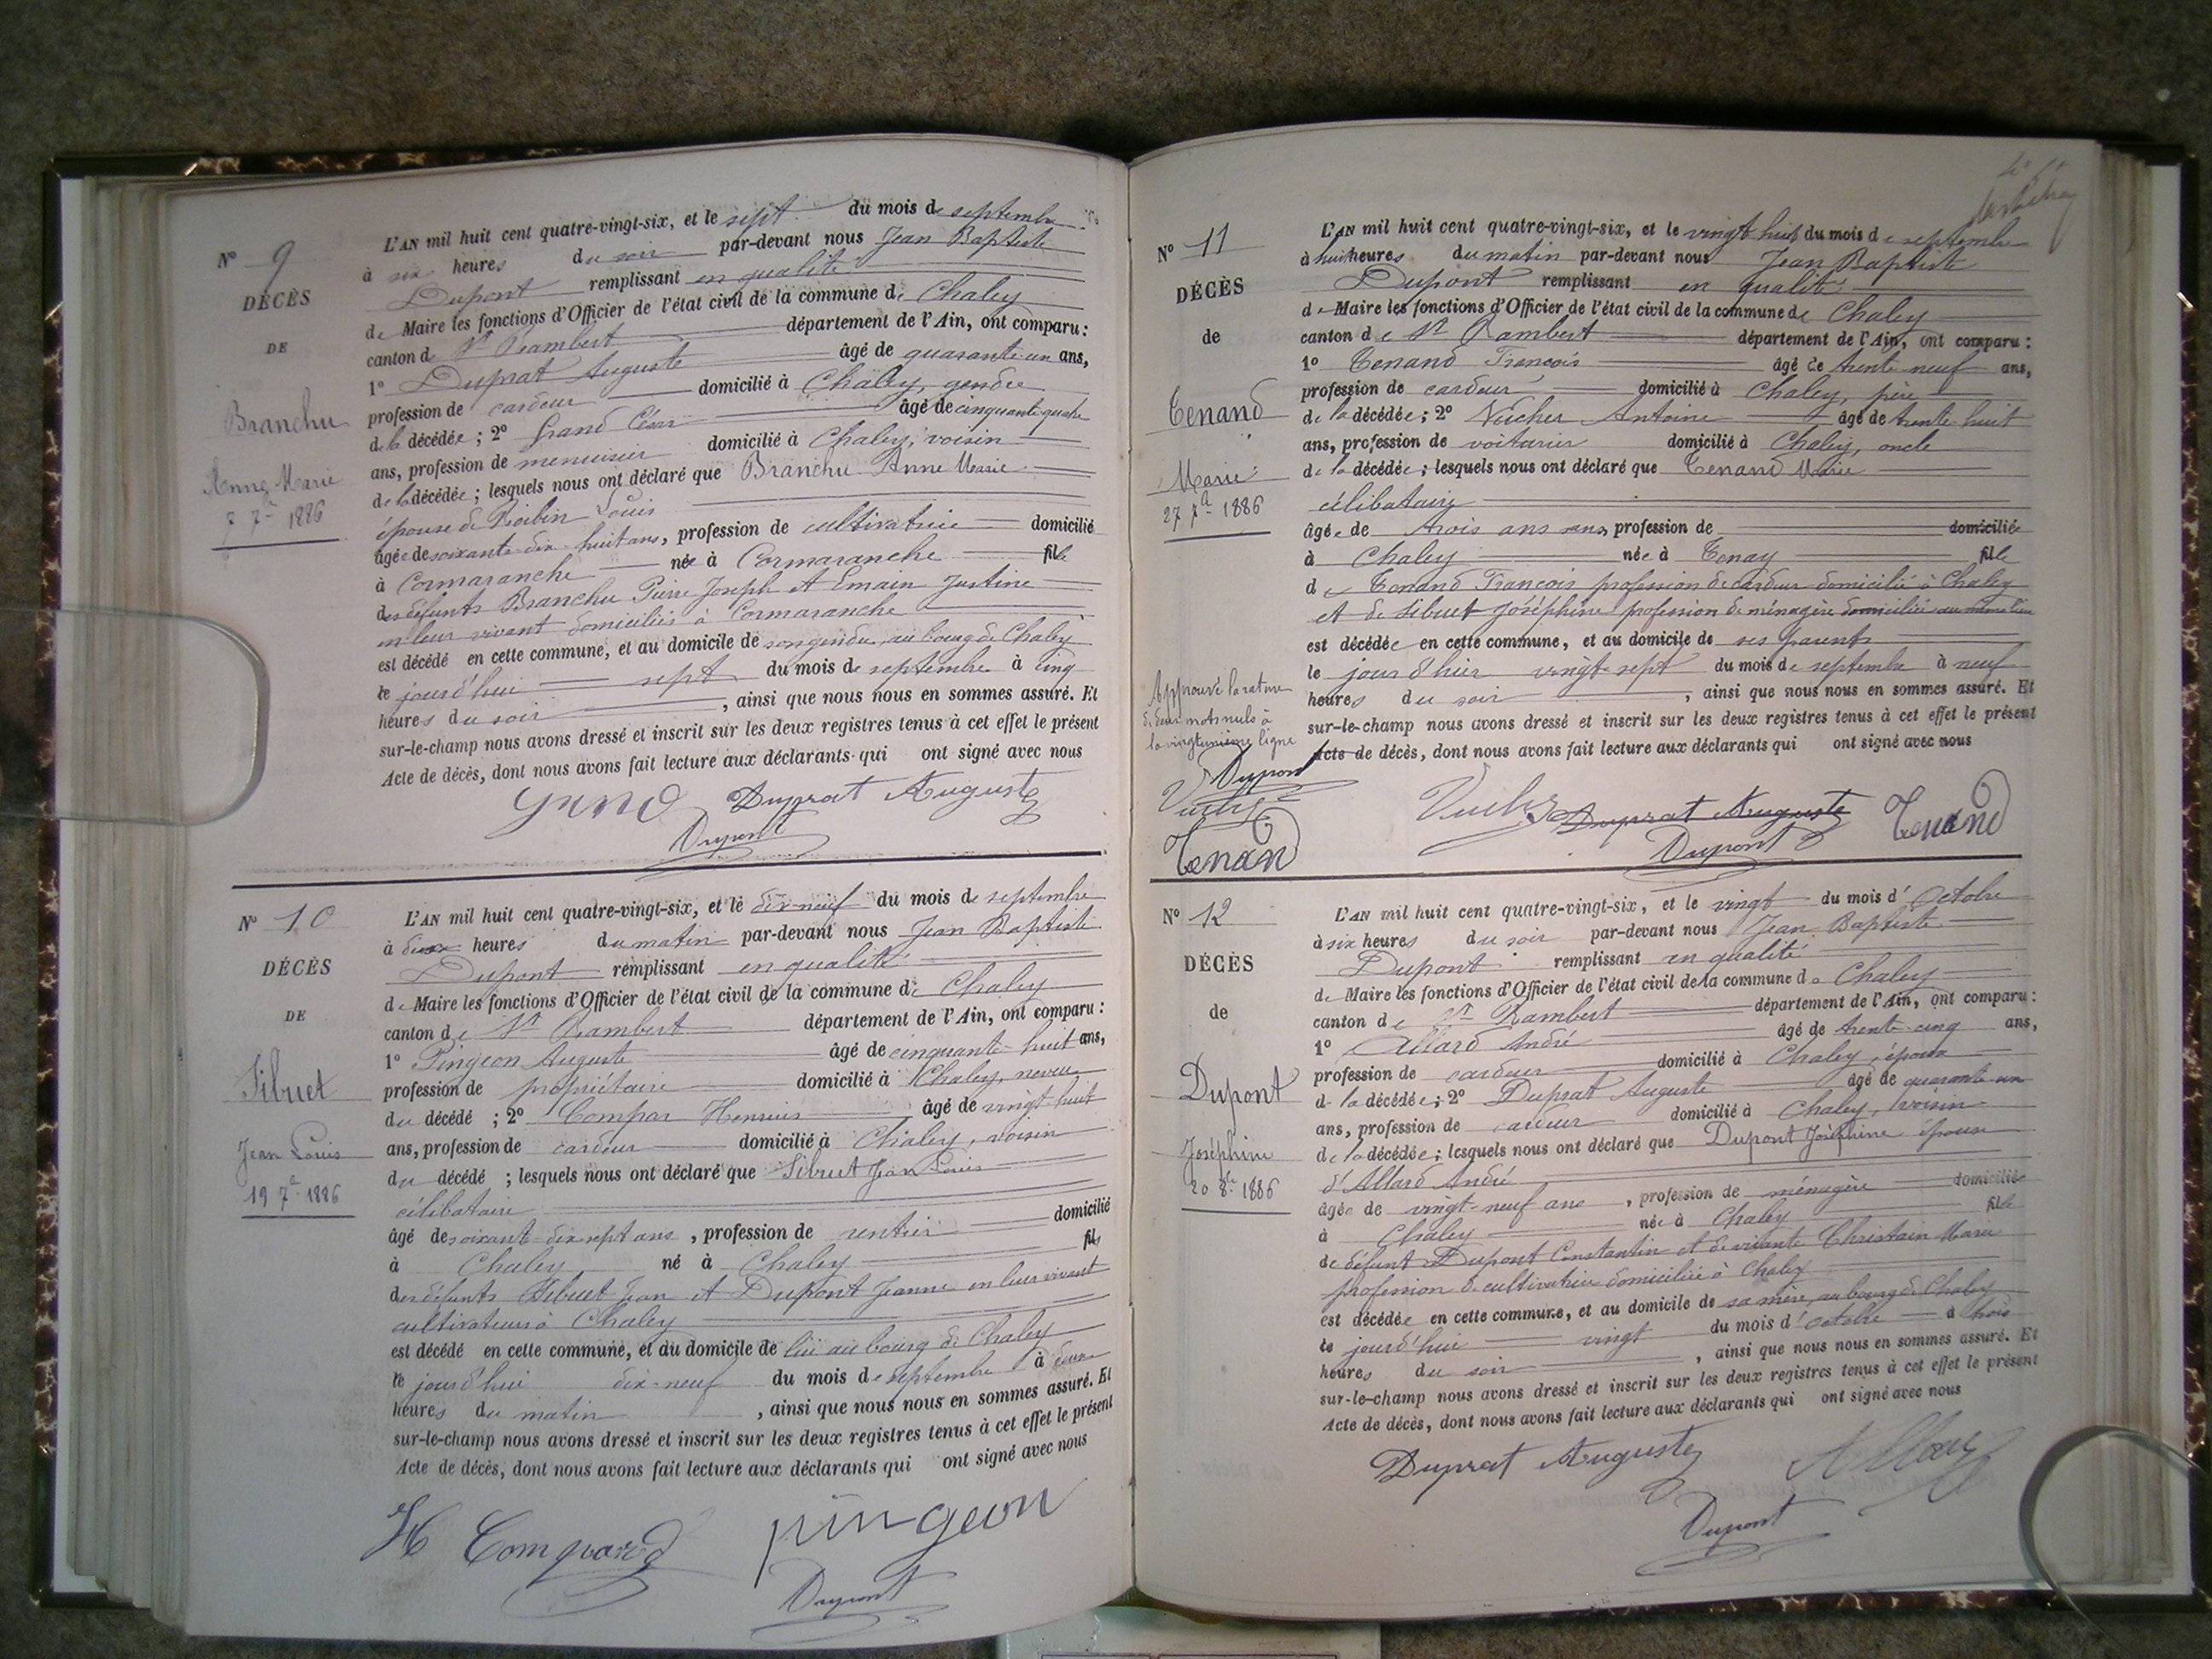 N° 9
DÉCÈS
DE
Branchu
Anne Marie
7 7bre 1886
L'AN mil huit cent quatre-vingt-six, et le sept du mois de septembre
à six heures du soir par-devant nous Jean Baptiste
Dupont remplissant en qualité
de Maire les fonctions d'Officier de l'état civil de la commune de Chaley
canton de St Rambert département de l'Ain, ont comparu :
1° Duprat Auguste âgé de quarante-un ans,
profession de cardeur domicilié à Chaley, gendre
de la décédée ; 2° Grand César âgé de cinquante quatre
ans, profession de menuisier domicilié à Chaley, voisin
de la décédée ; lesquels nous ont déclaré que Branchu Anne Marie
épouse de Roibin Louis
âgée de soixante dix huit ans, profession de cultivatrice domicilié
à Cormaranche née à Cormaranche fille
des défunts Branchu Pierre Joseph et Emain Justine
en leur vivant domiciliés à Cormaranche
est décédé en cette commune, et au domicile de son gendre, au bourg de Chaley
le jourd'hui sept du mois de septembre à cinq
heures du soir , ainsi que nous nous en sommes assuré. Et
sur-le-champ nous avons dressé et inscrit sur les deux registres tenus à cet effet le présent
Acte de décès, dont nous avons fait lecture aux déclarants qui ont signé avec nous
Duprat Auguste
Dupont
N° 10
DÉCÈS
DE
Sibuet
Jean Louis
19 7bre 1886
L'AN mil huit cent quatre-vingt-six, et le dix-neuf du mois de septembre
à heures du matin par-devant nous Jean Baptiste
Dupont remplissant en qualité
de Maire les fonctions d'Officier de l'état civil de la commune de Chaley
canton de St Rambert département de l'Ain, ont comparu :
1° Pingeon Auguste âgé de cinquante-huit ans,
profession de propriétaire domicilié à Chaley, neveu
du décédé ; 2° Compar âgé de vingt-huit
ans, profession de cardeur domicilié à Chaley, voisin
du décédé ; lesquels nous ont déclaré que Sibuet Jean Louis
célibataire
âgé de soixante-dix-sept ans, profession de rentier domicilié
à Chaley né à Chaley fils
des défunts Sibuet Jean et Dupont Jeanne en leur vivant
cultivateurs à Chaley
est décédé en cette commune, et au domicile de lui au bourg de Chaley
le jourd'hui dix-neuf du mois de septembre à
heures du matin , ainsi que nous nous en sommes assuré. Et
sur-le-champ nous avons dressé et inscrit sur les deux registres tenus à cet effet le présent
Acte de décès, dont nous avons fait lecture aux déclarants qui ont signé avec nous
H Compard pingeon
Dupont
N° 11
DÉCÈS
de
Tenand
Marie
27 7bre 1886
L'AN mil huit cent quatre-vingt-six, et le vingt huit du mois de septembre
à huit heures du matin par-devant nous Jean Baptiste
Dupont remplissant en qualité
de Maire les fonctions d'Officier de l'état civil de la commune de Chaley
canton de St Rambert département de l'Ain, ont comparu :
1° Tenand François âgé de trente neuf ans,
profession de cardeur domicilié à Chaley, père
de la décédée ; 2° Vucher Antoine âgé de trente-huit
ans, profession de voiturier domicilié à Chaley, oncle
de la décédée ; lesquels nous ont déclaré que Tenand Marie
célibataire
âgée de trois ans ans, profession de domiciliée
à Chaley née à Tenay fille
de Tenand François profession de cardeur domicilié à Chaley
et de Sibuet Joséphine profession de ménagère domiciliée au même lieu
est décédée en cette commune, et au domicile de ses parents
le jour d'hier vingt-sept du mois de septembre à neuf
heures du soir , ainsi que nous nous en sommes assuré. Et
sur-le-champ nous avons dressé et inscrit sur les deux registres tenus à cet effet le présent
Acte de décès, dont nous avons fait lecture aux déclarants qui ont signé avec nous
Approuvé la rature
de deux mots nuls à
la vingtunième ligne
Dupont
Tenand
Duprat Auguste Tenand
Dupont
N° 12
DÉCÈS
de
Dupont
Joséphine
20 8bre 1886
L'AN mil huit cent quatre-vingt-six, et le vingt du mois d'octobre
à six heures du soir par-devant nous Jean Baptiste
Dupont remplissant en qualité
de Maire les fonctions d'Officier de l'état civil de la commune de Chaley
canton de St Rambert département de l'Ain, ont comparu :
1° Allard André âgé de trente-cinq ans,
profession de cardeur domicilié à Chaley, époux
de la décédée ; 2° Duprat Auguste âgé de quarante-un
ans, profession de cardeur domicilié à Chaley, voisin
de la décédée ; lesquels nous ont déclaré que Dupont Joséphine épouse
d'Allard André
âgée de vingt-neuf ans, profession de ménagère domiciliée
à Chaley née à Chaley fille
de défunt Dupont Constantin et de vivante Christain Marie
profession de cultivatrice domiciliée à Chaley
est décédée en cette commune, et au domicile de sa mère, au bourg de Chaley
le jourd'hui vingt du mois d'octobre à trois
heures du soir , ainsi que nous nous en sommes assuré. Et
sur-le-champ nous avons dressé et inscrit sur les deux registres tenus à cet effet le présent
Acte de décès, dont nous avons fait lecture aux déclarants qui ont signé avec nous
Duprat Auguste
Dupont